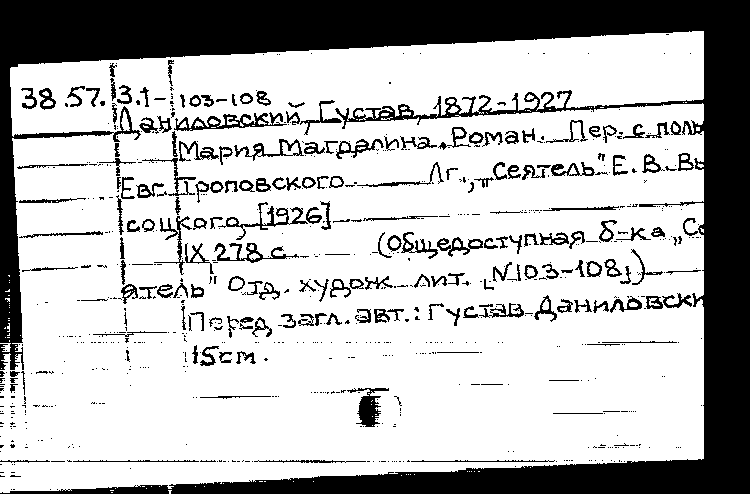 38.57.3.1-103-108
Даниловский, Густав, 1872-1927
Мария Магдалина. Роман. Пер. с поль
Евг. Троповского Лг., „Сеятель" Е. В. Вы
соцкого, [1926]
IX 278 с. (Общедоступная б-ка „Се
ятель" Отд. худож. лит. [N103-108])
Перед загл. авт.: Густав Даниловски
15cm.